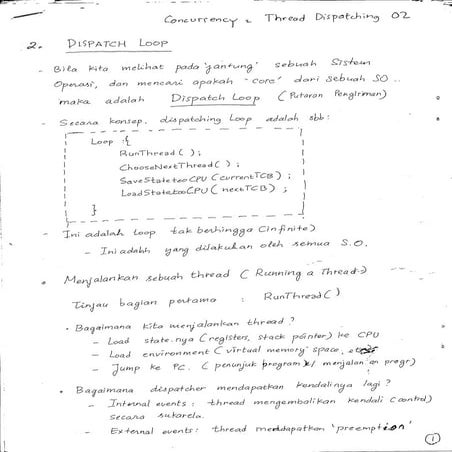 Concurrency & Thread Dispatching 02
2. DISPATCH LOOP
- Bila kita melihat pada 'jantung' sebuah Sistem
Operasi, dan mencari apakah 'core' dari sebuah SO..
maka adalah Dispatch Loop (Putaran Pengiriman)
- Secara konsep, dispatching Loop adalah sbb:
Loop {
RunThread( );
ChooseNextThread( );
SaveStatetooCPU (currentTCB);
LoadStatetooCPU (nextTCB);
}
- Ini adalah loop tak berhingga (infinite)
- Ini adalah yang dilakukan oleh semua S.O.
• Menjalankan sebuah thread (Running a Thread)
Tinjau bagian pertama : RunThread( )
• Bagaimana kita menjalankan thread?
- Load state.nya (registers, stack pointer) ke CPU
- Load environment (virtual memory space,
- Jump ke PC. (penunjuk program u/ menjalan an progr)
• Bagaimana dispatcher mendapatkan kendalinya lagi?
- Internal events : thread mengembalikan kendali (control)
secara sukarela.
- External events : thread mendapatkan 'preemption'
1